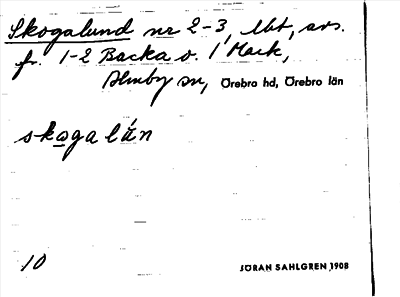 Skogalund nr 2-3, lht, avs.
fr. 1-2 Backa o. 1 Mark,
Almby sn, Örebro hd, Örebro län
skogalún
10
JÖRAN SAHLGREN 1908